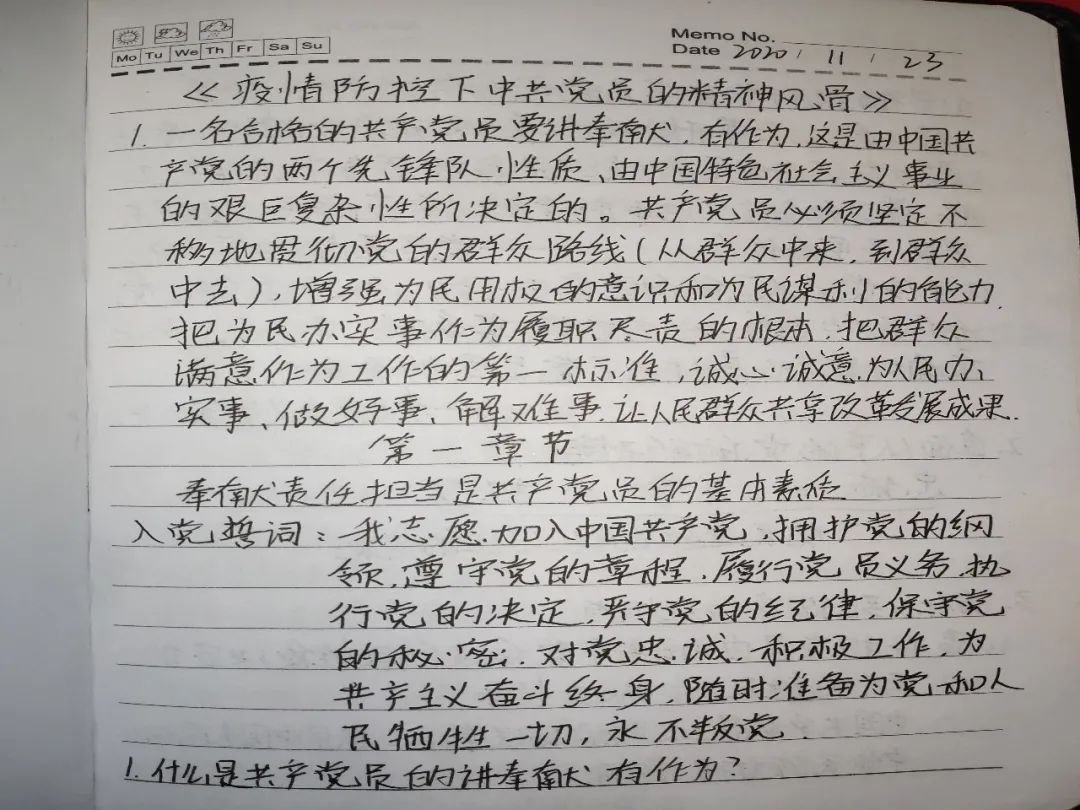 Memo No.
Mo Tu We Th Fr Sa Su
Date 2020 / 11 / 23
《疫情防控下中共党员的精神风骨》
1. 一名合格的共产党员要讲奉献,有作为,这是由中国共
产党的两个先锋队性质、由中国特色社会主义事业
的艰巨复杂性所决定的。共产党员必须坚定不
移地贯彻党的群众路线(从群众中来,到群众
中去),增强为民用权的意识和为民谋利的能力,
把为民办实事作为履职尽责的根本,把群众
满意作为工作的第一标准,诚心诚意为人民办
实事、做好事、解难事,让人民群众共享改革发展成果.
第一章节
奉献责任担当是共产党员的基本素质
入党誓词:我志愿加入中国共产党,拥护党的纲
领,遵守党的章程,履行党员义务,执
行党的决定,严守党的纪律,保守党
的秘密,对党忠诚,积极工作,为
共产主义奋斗终身,随时准备为党和人
民牺牲一切,永不叛党
1. 什么是共产党员的讲奉献 有作为?